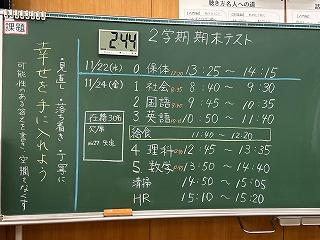 聴き方名人への道
課題
244
2学期期末テスト
11/22(水) 0 保体 13:25〜14:15
11/24(金) 1 社会 8:40〜9:30
2 国語 9:45〜10:35
3 英語 10:50〜11:40
給食 11:40〜12:20
4. 理科 12:45〜13:35
5. 数学 13:50〜14:40
清掃 14:50〜15:05
HR 15:10〜15:20
在籍30名
欠席
見直し 落ち着き 丁寧に
幸せを手に入れよう
可能性のある答えを書き、空欄をなくす